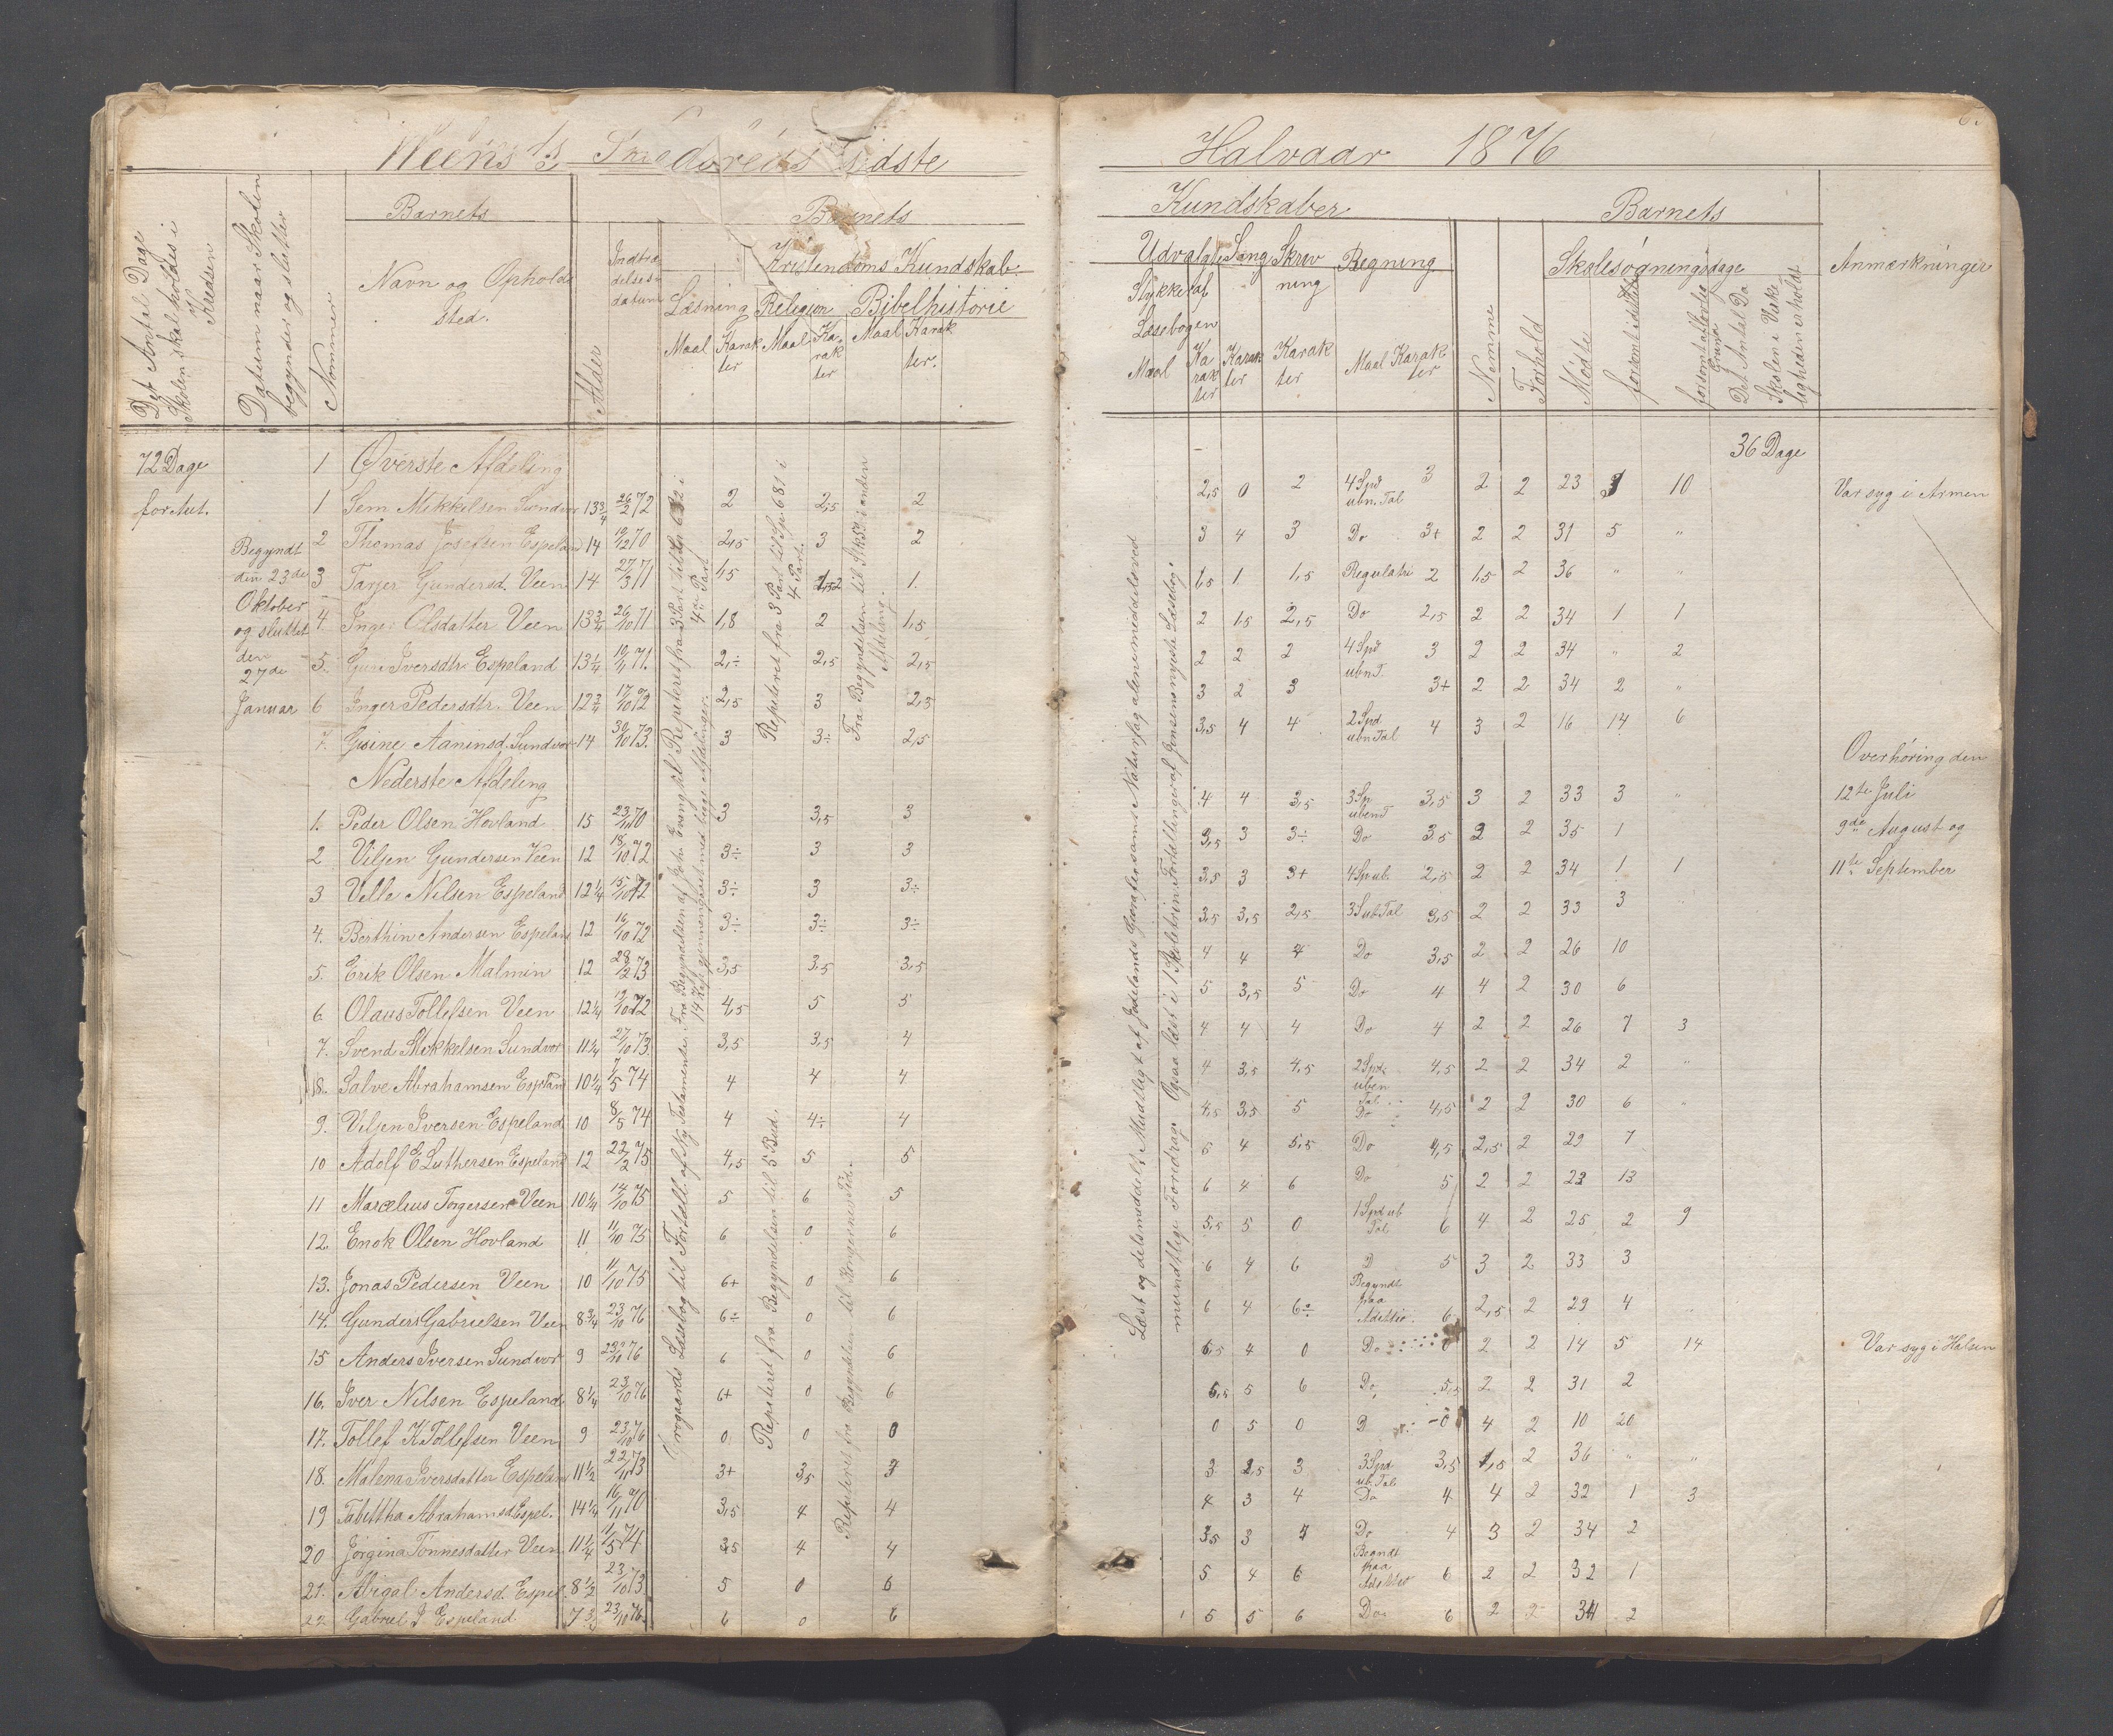 Veens Skolekreds sidste Halvaar 1876
Det Antal Dage Skolen skal holdes i Kredsen
Datum naar Skolen begynder og slutter
Nommer
Barnets
Navn og Opholds
Sted.
Alder
Indtræ
delses
datum
Barnets Kundskaber
Læsning
Maal Karak
ter
Kristendoms Kundskab.
Religion
Maal Ka
rak
ter
Bibelhistorie
Maal Karak
ter.
Udvalgte
Stykker af
Læsebogen
Maal Ka
rak
ter
Sang
Karak
ter
Skriv
ning
Karak
ter
Regning
Maal Karak
ter
Nemme
Forhold
Barnets
Skolesøgningsdage
Mødte
forsømt
forsømt af lovlig Grund
Det Antal Da
Skolen i Virke
ligheden er holdt
Anmærkninger
72 Dage
for Aut.
Begyndt
den 23de
Oktober
og sluttet
den
27de
Januar
36 Dage
1 Øverste Afdeling
1 Sem Mikkelsen Sundvor 13 3/4 26/2 72 2 2,5 2 2,5 0 2 4 Spd ubn. Tal 3 2 2 23 3 10 Var syg i Armen
2 Thomas Josefsen Espeland 14 19/12 70 2,5 3 2 3 4 3 Do 3+ 2 2 31 5 "
3 Tarjer Gundersd. Veen 14 27/3 71 1,5 2 1. 1,5 1 1,5 Regulatri 2 1,5 2 36 " "
4. Inger Olsdatter Veen 13 3/4 26/10 71 1,8 2 1,5 2 1,5 2,5 Do 2,5 2 2 34 1 1
5. Guri Iversdtr. Espeland 13 1/4 19/11 71. 2,÷ 2,5 2,5 2 2 2 4 Spd ubn T. 3 2 2 34 " 2
6 Inger Pedersdtr. Veen 12 3/4 17/10 72 2,5 3 2,5 3 2 3 3+ 2 2 34 2 "
7. Gusine Aaninsd. Sundvor 14 30/10 73. 3 3÷ 2,5 3,5 4 4 2 Spd ubn Tal 4 3 2 16 14 6
Nederste Afdeling
Overhøring den
12te Juli
9de August og
11te September
1. Peder Olsen Hovland 15 23/10 70 3 3,5 3 4 4 3,5 3 Sp. uben T 3,5 3 2 33 3 "
2 Viljen Gundersen Veen 12 18/10 72 3÷ 3 3 3,5 3 3÷ Do 3,5 2 2 35 1
3 Velle Nilsen Espeland 12 1/4 15/10 72 3÷ 3 3÷ 3,5 3 3+ 4 Sp ub. 2,5 2 2 34 1 1
4. Berthin Andersen Espeland 12 16/10 72 3÷ 3÷ 3÷ 3,5 3,5 2,5 3 S ub Tal 3,5 2 2 33 3 "
5. Erik Olsen Malmin 12 28/2 73 3,5 3,5 3,5 4 4 4 Do 3,5 2 2 26 10
6 Olaus Tollefsen Veen 12 1/4 19/10 72 4,5 5 5 5 3,5 5 Do 4 4 2 30 6
7. Svend Mikkelsen Sundvor 11 1/4 27/10 73. 3,5 3,5 4 4 4 4 Do 4 2 2 26 7 3
8. Salve Abrahamsen Espeland 10 1/4 7/5 74 4 4 4 4 3,5 4,5 2 Spd. uben Tal 4,5 2 2 34 2 "
9. Viljen Iversen Espeland 10 8/5 74 4 4÷ 4 4,5 3,5 5 Do 4,5 2 2 30 6 "
10 Adolf E Luthersen Espeland 12 22/2 75 4,5 5 5 5 4 5,5 Do 4,5 2,5 2 29 7
11 Marcelius Torgersen Veen 10 1/4 14/10 75 5 6 5 6 4 6 Do 5 2 2 23 13
12. Enok Olsen Hovland 11 11/10 75 6 0 6 5,5 5 0 1 Spd ub Tal 6 4 2 25 2 9
13. Jonas Pedersen Veen 10 11/10 75 6+ 0 6 6 4 6 D 5 3 2 33 3
14. Gunders Gabrielsen Veen 8 3/4 23/10 76 6÷ 0 6 6 4 6÷ Begyndt paa Adittio. 6 2,5 2 29 4 "
15 Anders Iversen Sundvor 9 23/10 76 6 0 6 6,5 4 0 Do 0 2 2 14 5 14 Var syg i Halsen
16. Iver Nilsen Espeland 8 1/4 23/10 76 6+ 0 6 5,5 5 6 Do 5,5 2 2 31 2
17. Tollef K Tollefsen Veen 9 23/10 76 0 0 0 0 5 0 D 0 4 2 10 26
18. Malena Iversdatter Espeland 11 1/2 22/11 73 3+ 3,5 3 3 2,5 3 3 Spd ub. Tal 3,5 1,5 2 36 " "
19 Tabittha Abrahamsd Espel. 14 1/4 16/11 70 3,5 4 4 4 3 4 Do 4 4 2 32 1 3
20 Jørgina Tønnesdatter Veen 11 1/4 1/5 74 3,5 4 4 3,5 3 4 Do 4 3 2 34 2
21. Abigal Andersd. Espel. 8 1/2 23/10 73. 5 0 6 5 4 6 Begndt paa Adittio 6 2 2 32 1
22 Gabriel J Espeland 7 3/4 23/10 76. 6 0 6 5 5 6 Do 6 2 2 34 2
Repeteret fra 3 Part til Sp. 681 i
4 Part.
Fra Begyndelsen til Stk 53 i anden
Afdeling.
Repeteret fra Begyndelsen til 5 Bud.
Repeteret fra Begyndelsen til Kongernes Tid.